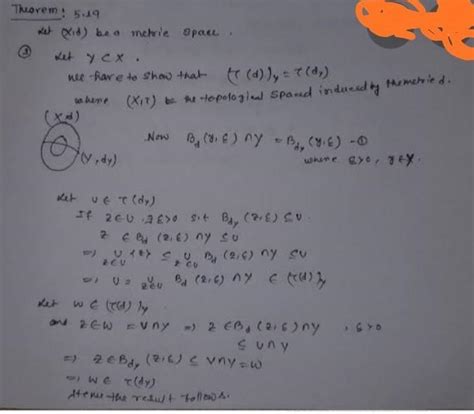 Theorem: 5.19
Let (X,d) be a metric space.
① Let Y ⊂ X.
We have to show that (τ(d))_Y = τ(d_Y)
where (X,τ) be the topological spaced induced by the metric d.
(X,d)
(Y,d_Y)
Now B_d(y,ε) ∩ Y = B_{d_Y}(y,ε) —①
where ε>0, y∈Y.
Let U ∈ τ(d_Y)
If z∈U, ∃ε>0 s.t B_{d_Y}(z,ε) ⊆ U.
z ∈ B_d(z,ε) ∩ Y ⊆ U
⇒ ∪_{z∈U} {z} ⊆ ∪_{z∈U} B_d(z,ε) ∩ Y ⊆ U
⇒ U = ∪_{z∈U} B_d(z,ε) ∩ Y ∈ (τ(d))_Y
Let W ∈ (τ(d))_Y
and z∈W = V∩Y ⇒ z ∈ B_d(z,ε) ∩ Y, ε>0
⊆ V∩Y
⇒ z∈B_{d_Y}(z,ε) ⊆ V∩Y = W
⇒ W ∈ τ(d_Y)
Hence the result follows.